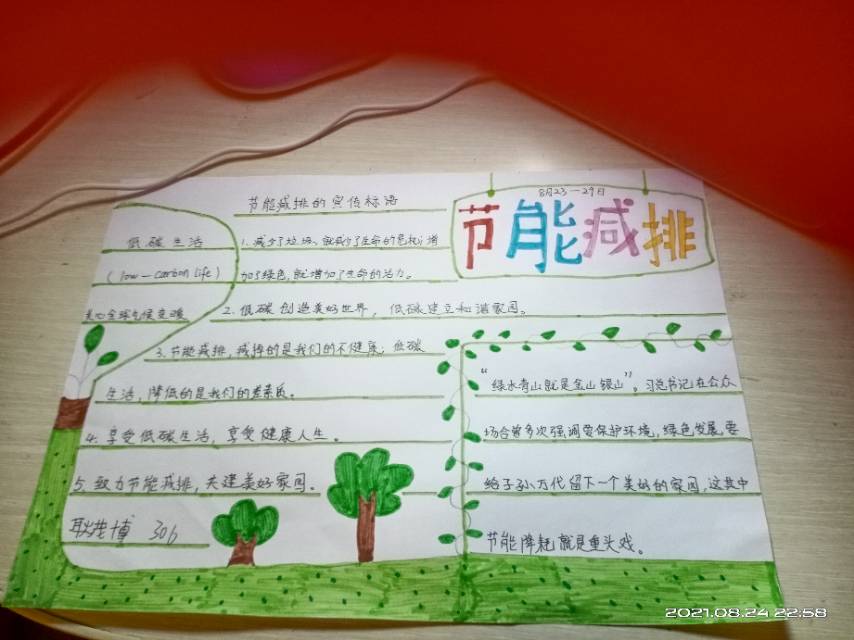 8月23—29日
节能减排
节能减排的宣传标语
低碳生活
(low-carbon life)
关心全球气候变暖
1.减少了垃圾、就减少了生命的危机;增
加了绿色,就增加了生命的活力。
2.低碳创造美好世界,低碳建立和谐家园。
3.节能减排,减掉的是我们的不健康;低碳
生活,降低的是我们的
4.享受低碳生活,享受健康人生。
5.致力节能减排,共建美好家园。
博 306
“绿水青山就是金山银山”。习总书记在公众
场合曾多次强调要保护环境,绿色发展,要
给子孙万代留下一个美好的家园,这其中
节能降耗就是重头戏。
2021.08.24 22:58